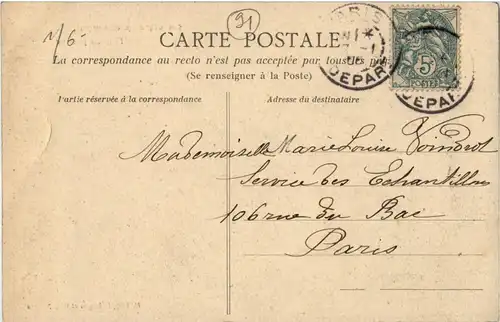 1/6-
91
CARTE POSTALE
La correspondance au recto n'est pas acceptée par tous les
(Se renseigner à la Poste)
Partie réservée à la correspondance
Adresse du destinataire
PARIS
DEPART
5
DEPAR
Mademoiselle Marie Louise Voindrot
Service des Echantillons
106 rue du Bac
Paris